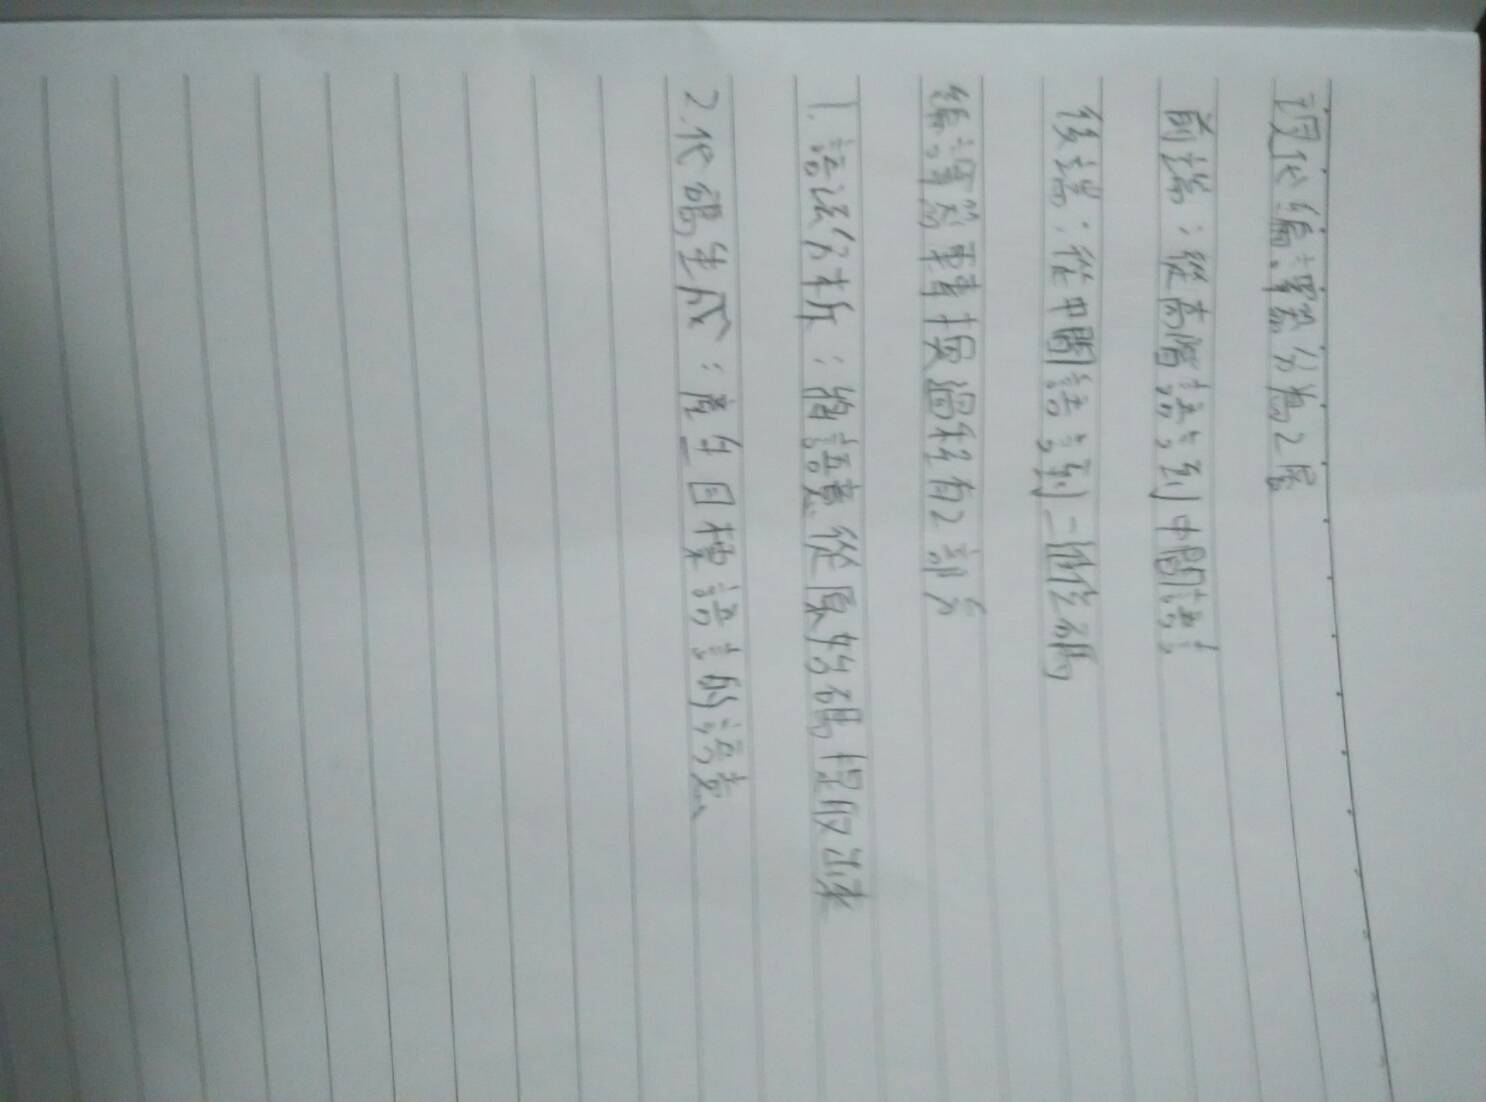 現代編譯器分為2層
前端：從高階語言到中間語言
後端：從中間語言到二進位碼
編譯器轉換過程有2部分
1. 語法分析：將語意從原始碼提取出來
2.代碼生成：產生目標語言的語意